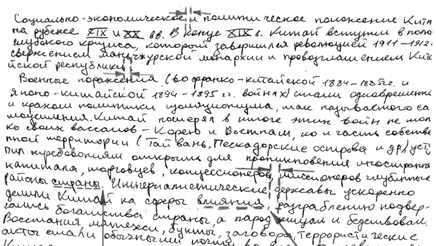 Социально-экономическое и политическое положение Кита
на рубеже XIX и XX вв. В конце XIX в. Китай вступил в поло
глубокого кризиса, который завершился революцией 1911-1912
свержением маньчжурской монархии и провозглашением Кит
йской республики.
Военные поражения (во франко-китайской 1884-1885 гг. и
японо-китайской 1894-1895 гг. войнах) стали одновременно
и крахом политики изоляционизма, так называемого са
Китай потерял в итоге этих войн не тол
ко своих вассалов - Корею и Вьетнам, но и часть собстве
нной территории (Тайвань, Пескадорские острова и др.)
требованиям открыть для проникновения иностран
капитала, торговцев, концессионеров, миссионеров глубинные
районы страны. Империалистические державы ускоренно
делили Китай на сферы влияния, разграблению подвер
гались богатства страны, а народ нищал и бедствовал.
Восстания, мятежи, бунты, заговоры, террористические
акты стали обычными